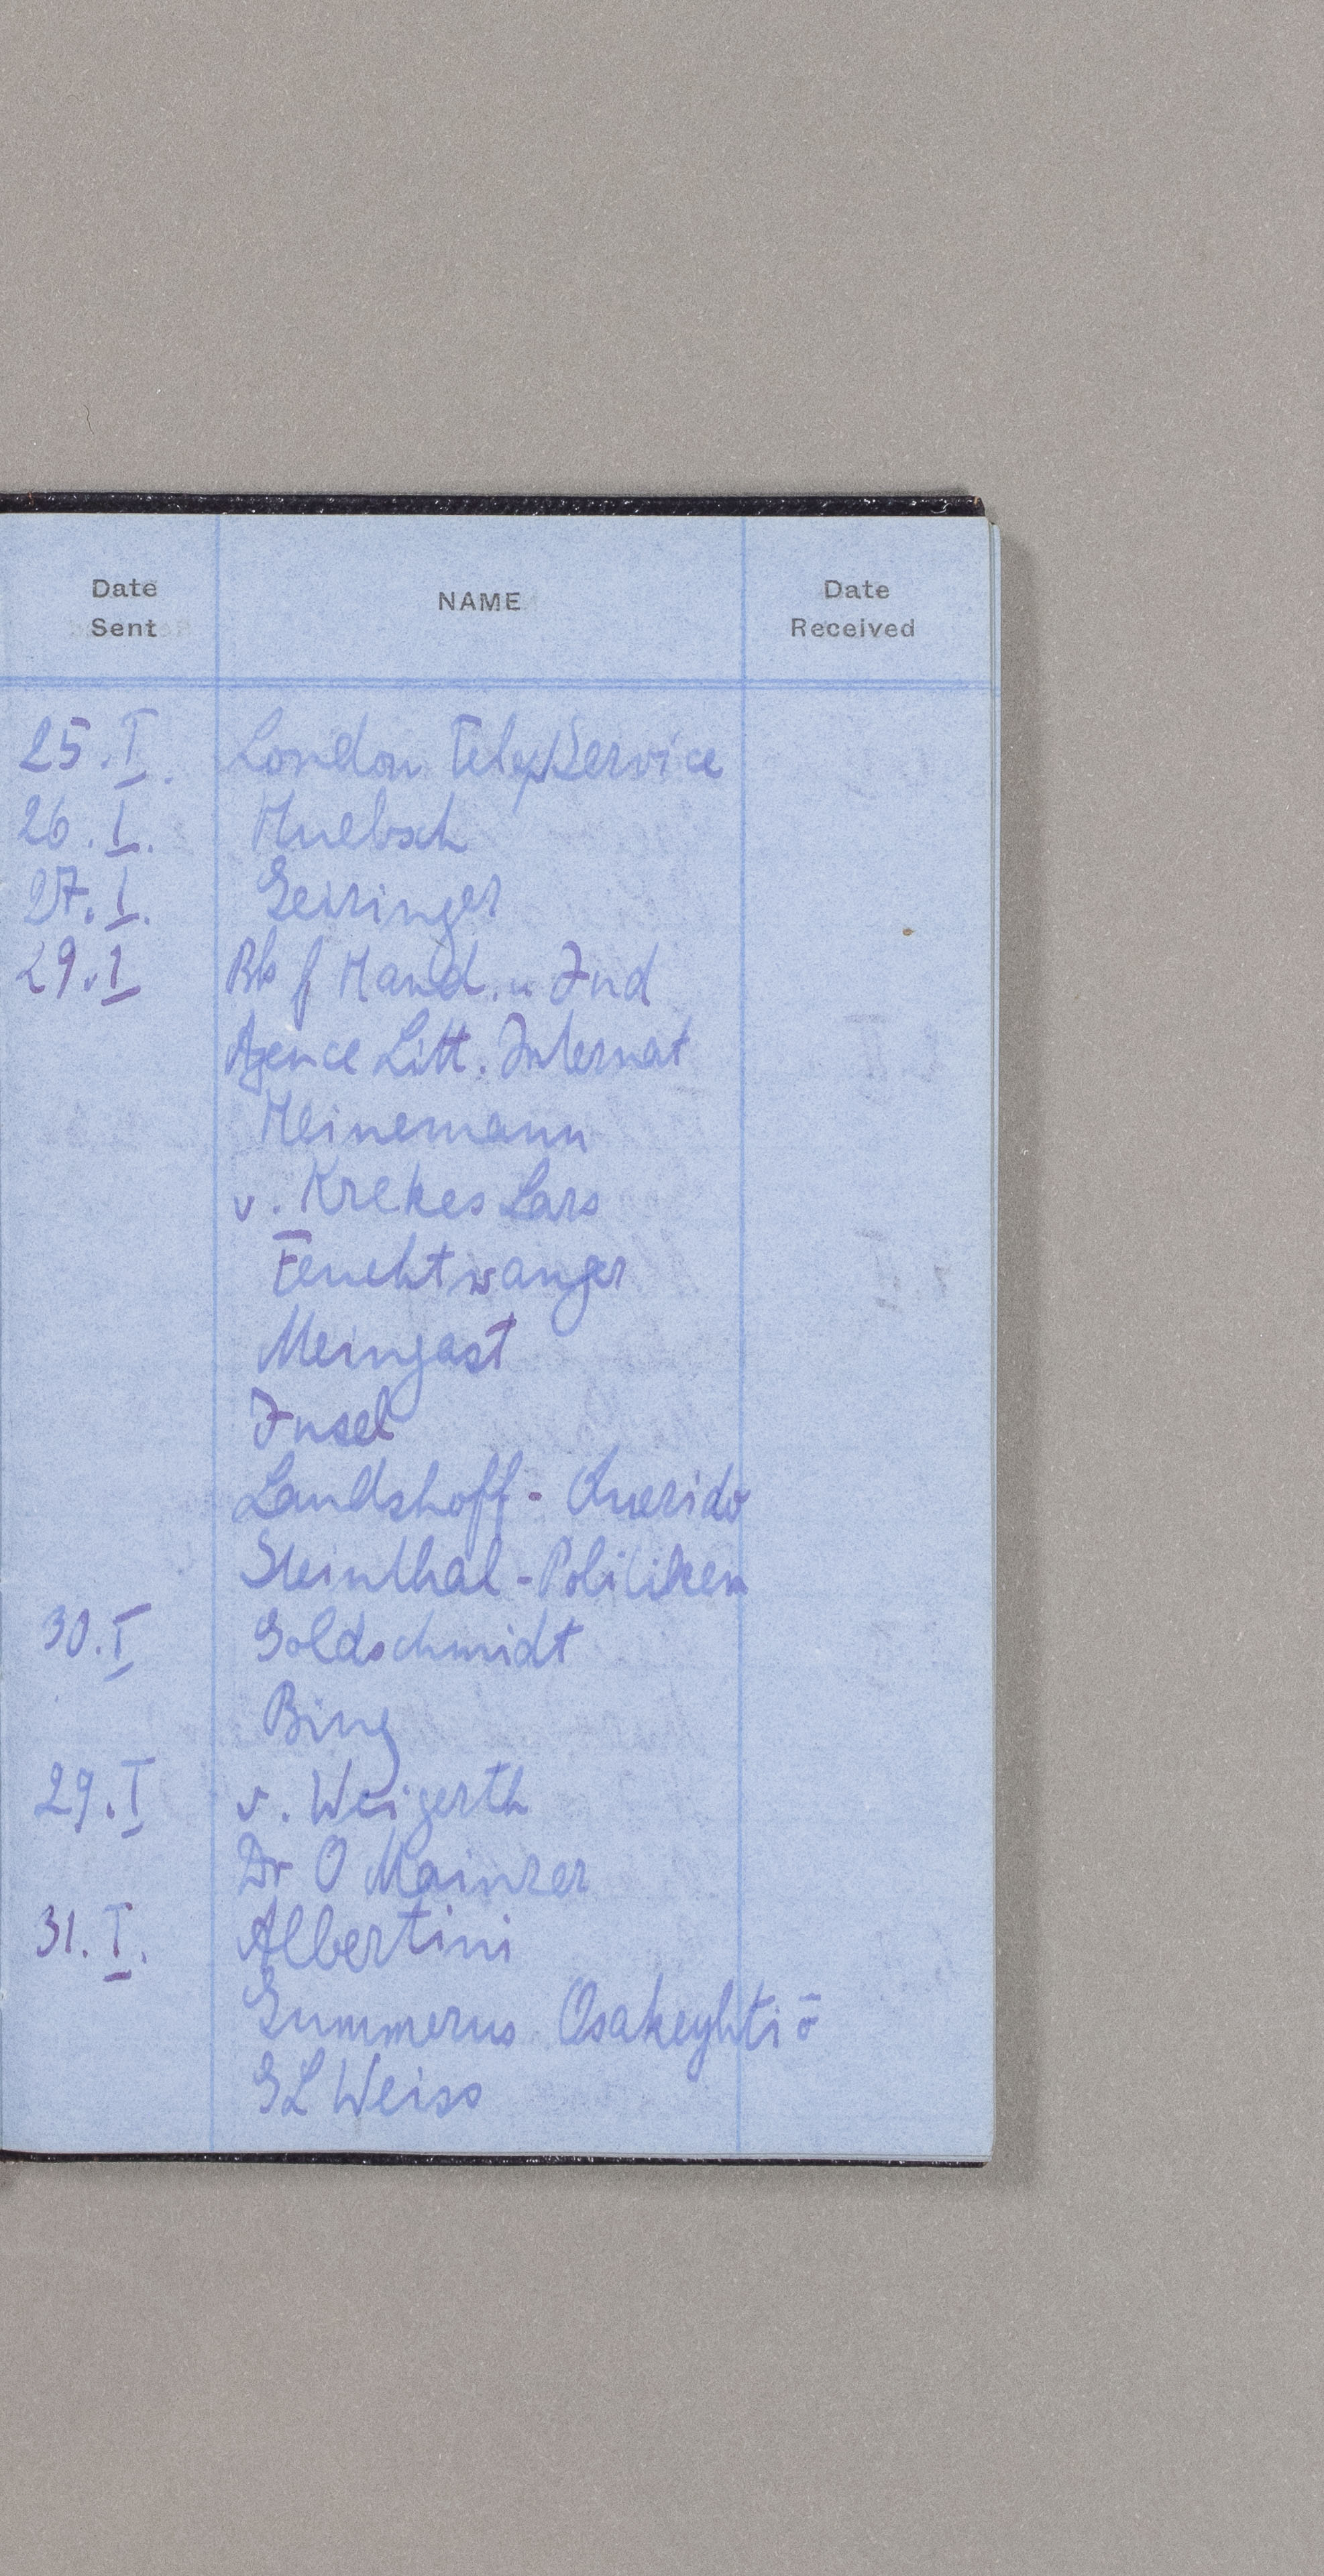 Date Sent NAME Date Received
25.I. London Telep Service
26.I. Huebsch
27.I. Geiringer
29.I Bk f Hand. u Ind
Agence Litt. Internat
Heinemann
v. Krekes Lars
Feuchtwanger
Meingast
Insel
Landshoff - Querido
Steinthal - Politiken
30.I Goldschmidt
Bing
29.I v. Weigerth
Dr O Mainzer
31.I. Albertini
Gummerus Osakeyhtiō
GL Weiss